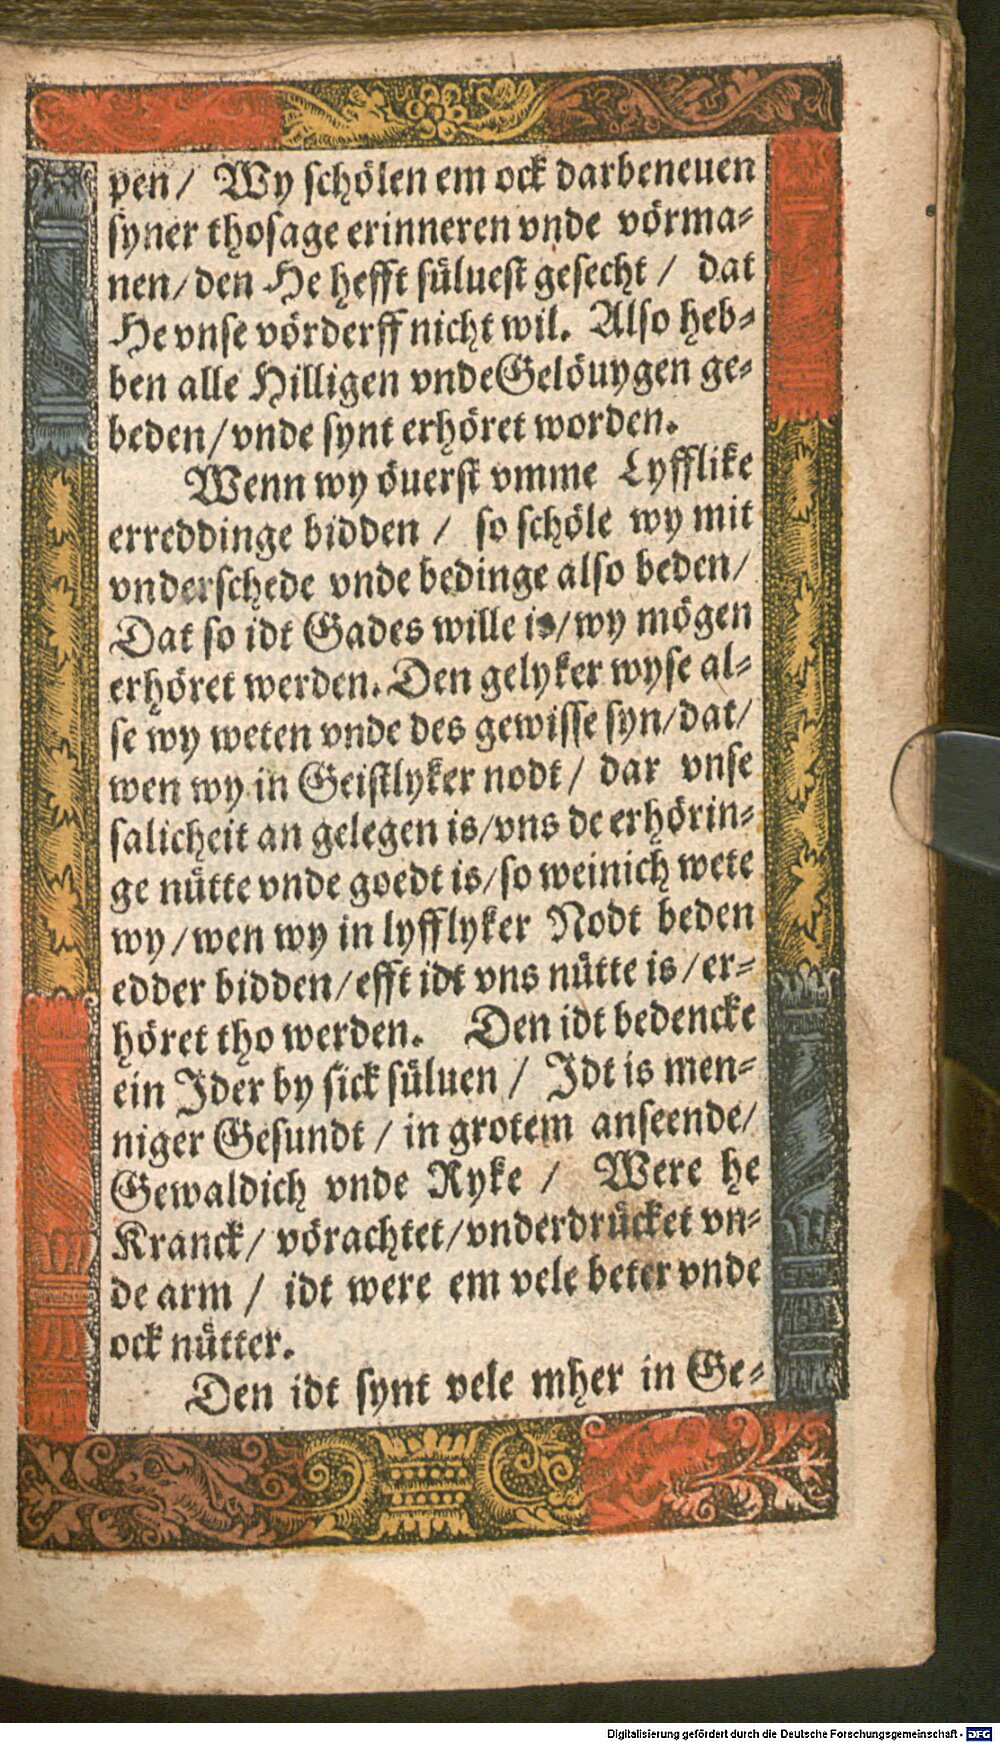 pen/ Wy schölen em ock darbeneuen
syner thosage erinneren vnde vörma-
nen/den He hefft süluest gesecht / dat
He vnse vörderff nicht wil. Also heb-
ben alle Hilligen vndeGelöuygen ge-
beden/vnde synt erhöret worden.
Wenn wy öuerst vmme Lyfflike
erreddinge bidden / so schöle wy mit
vnderschede vnde bedinge also beden/
Dat so idt Gades wille is/wy mögen
erhöret werden. Den gelyker wyse al-
se wy weten vnde des gewisse syn/dat/
wen wy in Geistlyker nodt/ dar vnse
salicheit an gelegen is/vns de erhörin-
ge nütte vnde goedt is/so weinich wete
wy/wen wy in lyfflyker Nodt beden
edder bidden/efft idt vns nütte is/er-
höret tho werden. Den idt bedencke
ein Jder by sick süluen / Jdt is men-
niger Gesundt / in grotem anseende/
Gewaldich vnde Ryke / Were he
Kranck/ vörachtet/vnderdrücket vn-
de arm / idt were em vele beter vnde
ock nütter.
Den idt synt vele mher in Ge-
Digitalisierung gefördert durch die Deutsche Forschungsgemeinschaft - DFG